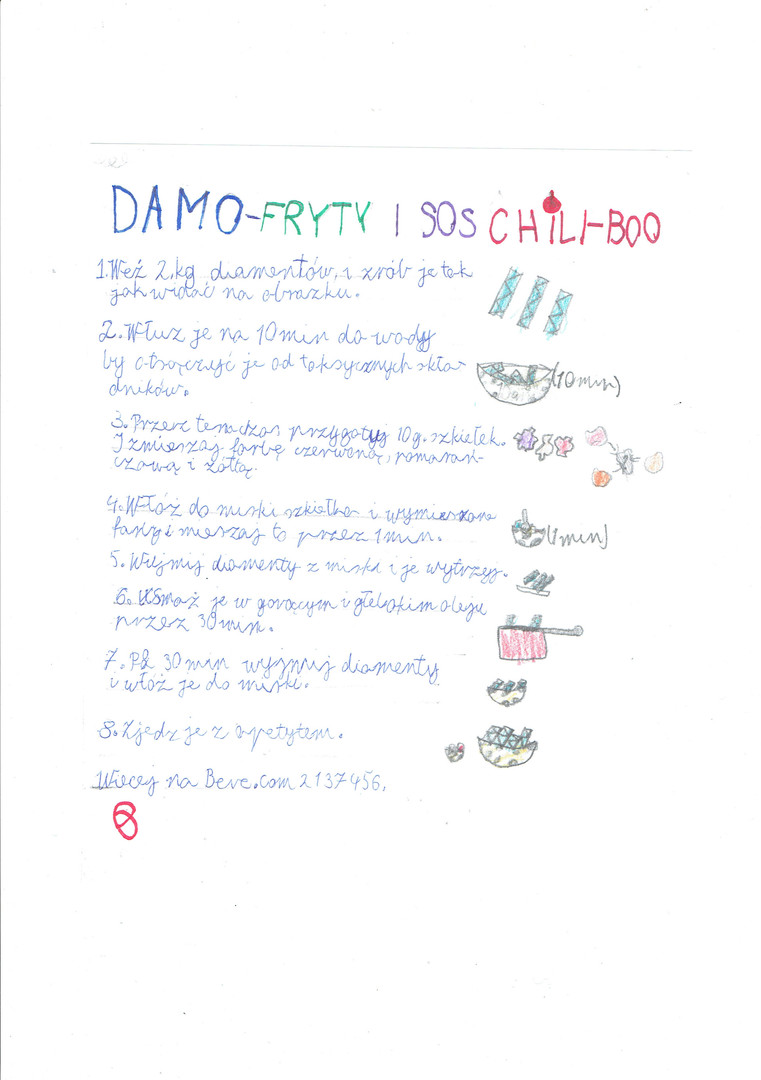 DAMO-FRYTY I SOS CHILI-BOO
1. Weź 2 kg diamentów, i zrób je tak
jak widać na obrazku.
2. Włuż je na 10 min do wody
by otroczyć je od toksycznych skła-
dników.
(10 min)
3. Przez ten czas przygotuj 10 g. szkiełek.
I zmieszaj farbę czerwoną, pomarań-
czową i żółtą.
4. Włóż do miski szkiełka i wymieszane
farby i mieszaj to przez 1 min.
(1 min)
5. Wyjmij diamenty z miski i je wytrzyj.
6. USmaż je w gorącym i głębokim oleju
przez 30 min.
7. Po 30 min wyjmij diamenty
i włóż je do miski.
8. Zjedz je z apetytem.
Więcej na Beve.com 2137456,
8